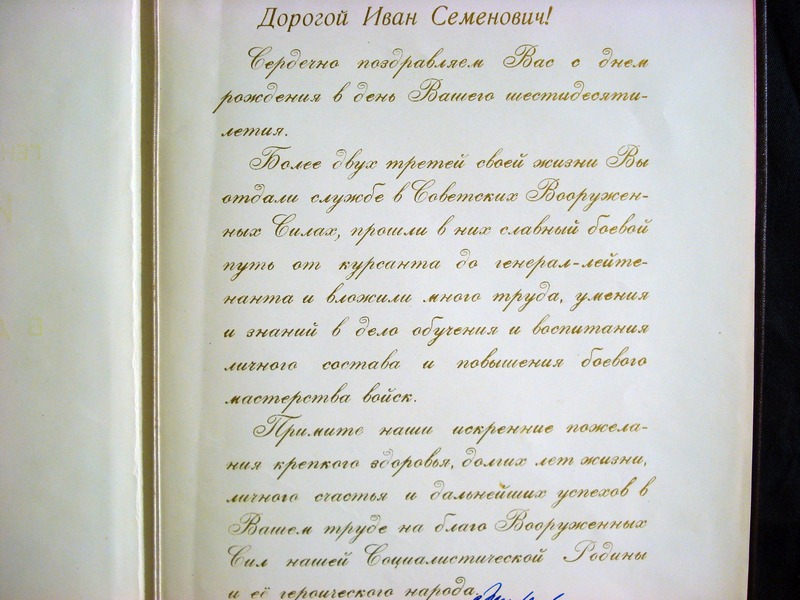 Дорогой Иван Семенович!
Сердечно поздравляем Вас с днем
рождения в день Вашего шестидесяти-
летия.
Более двух третей своей жизни Вы
отдали службе в Советских Вооружен-
ных Силах, прошли в них славный боевой
путь от курсанта до генерал-лейте-
нанта и вложили много труда, умения
и знаний в дело обучения и воспитания
личного состава и повышения боевого
мастерства войск.
Примите наши искренние пожела-
ния крепкого здоровья, долгих лет жизни,
личного счастья и дальнейших успехов в
Вашем труде на благо Вооруженных
Сил нашей Социалистической Родины
и её героического народа.